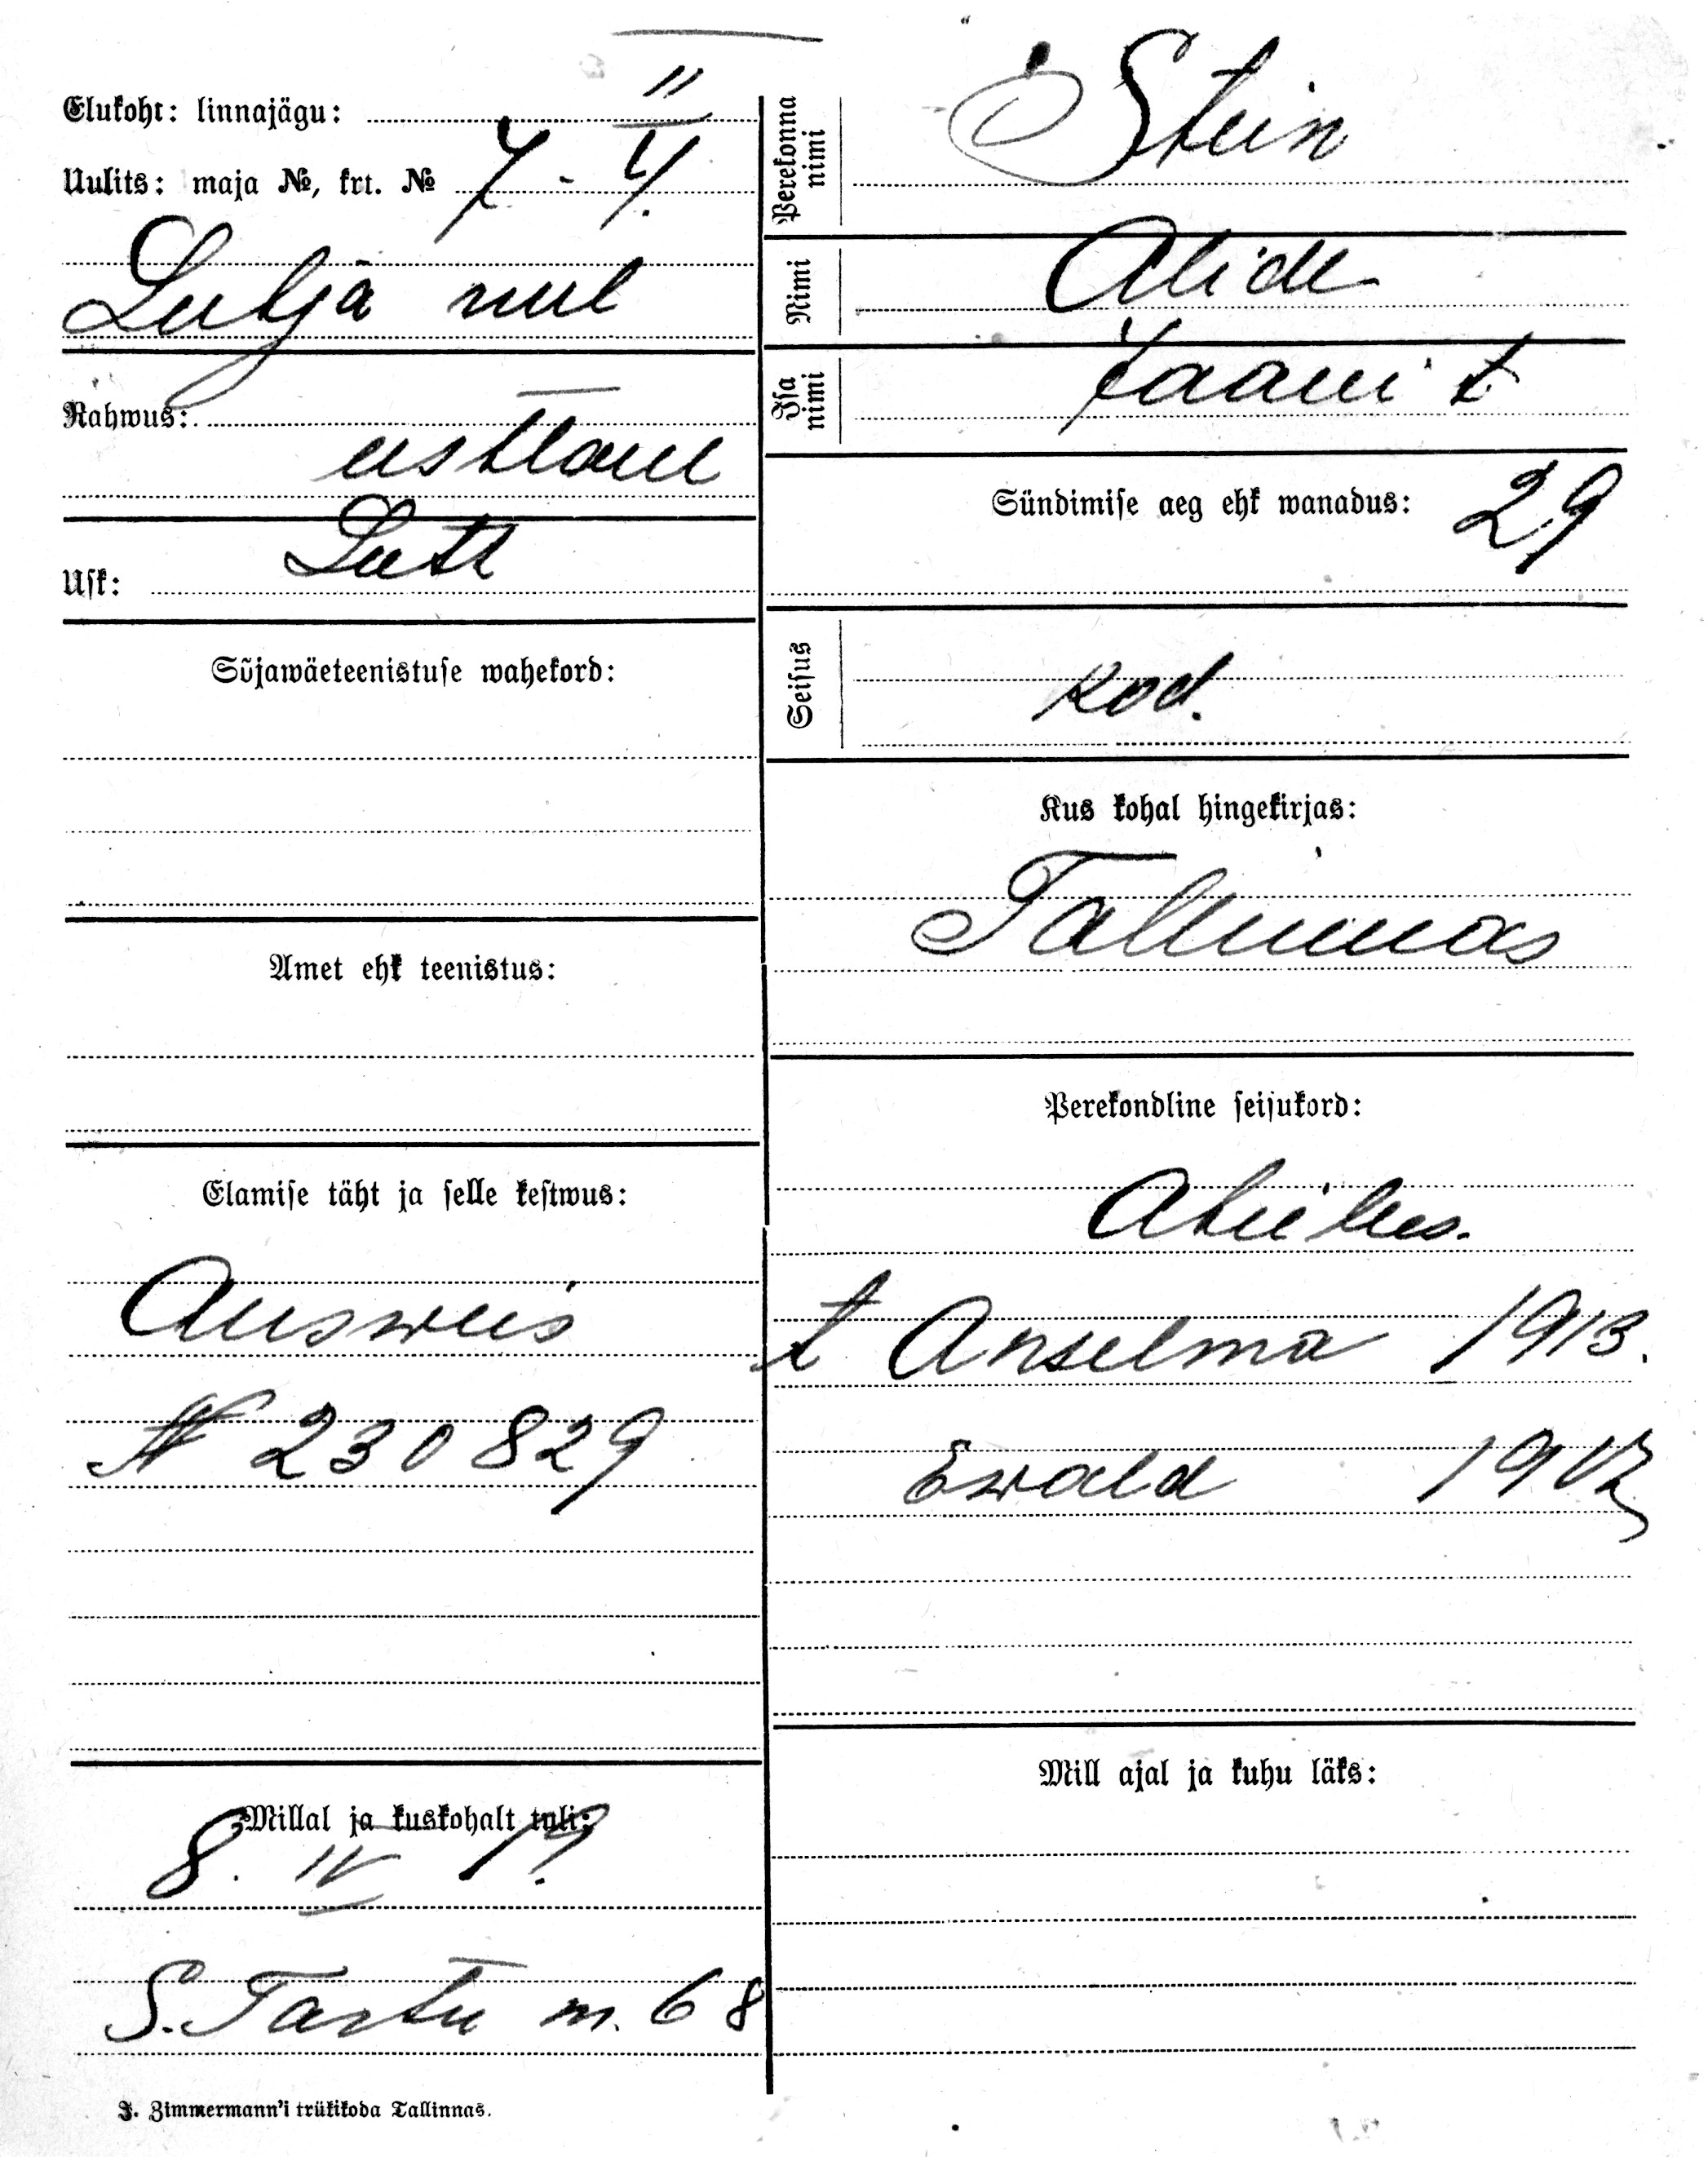 Elukoht: linnajägu: II
Uulits: maja №, krt. № 7 - 4.
Lubja uul
Rahwus:
eestlane
Usk: Lutt
Sõjawäeteenistuse wahekord:
Amet ehk teenistus:
Elamise täht ja selle kestwus:
Ausweis
№ 230829
Millal ja kuskohalt tuli:
8. IV 19.
S. Tartu m. 68
J. Zimmermann'i trükikoda Tallinnas.
Perekonna nimi Stein
Nimi Alide
Isa nimi Jaani t
Sündimise aeg ehk wanadus: 29
Seisus kod.
Kus kohal hingekirjas:
Tallinnas
Perekondline seisukord:
Abielus.
t Anselma 1913.
Ewald
Mill ajal ja kuhu läks: